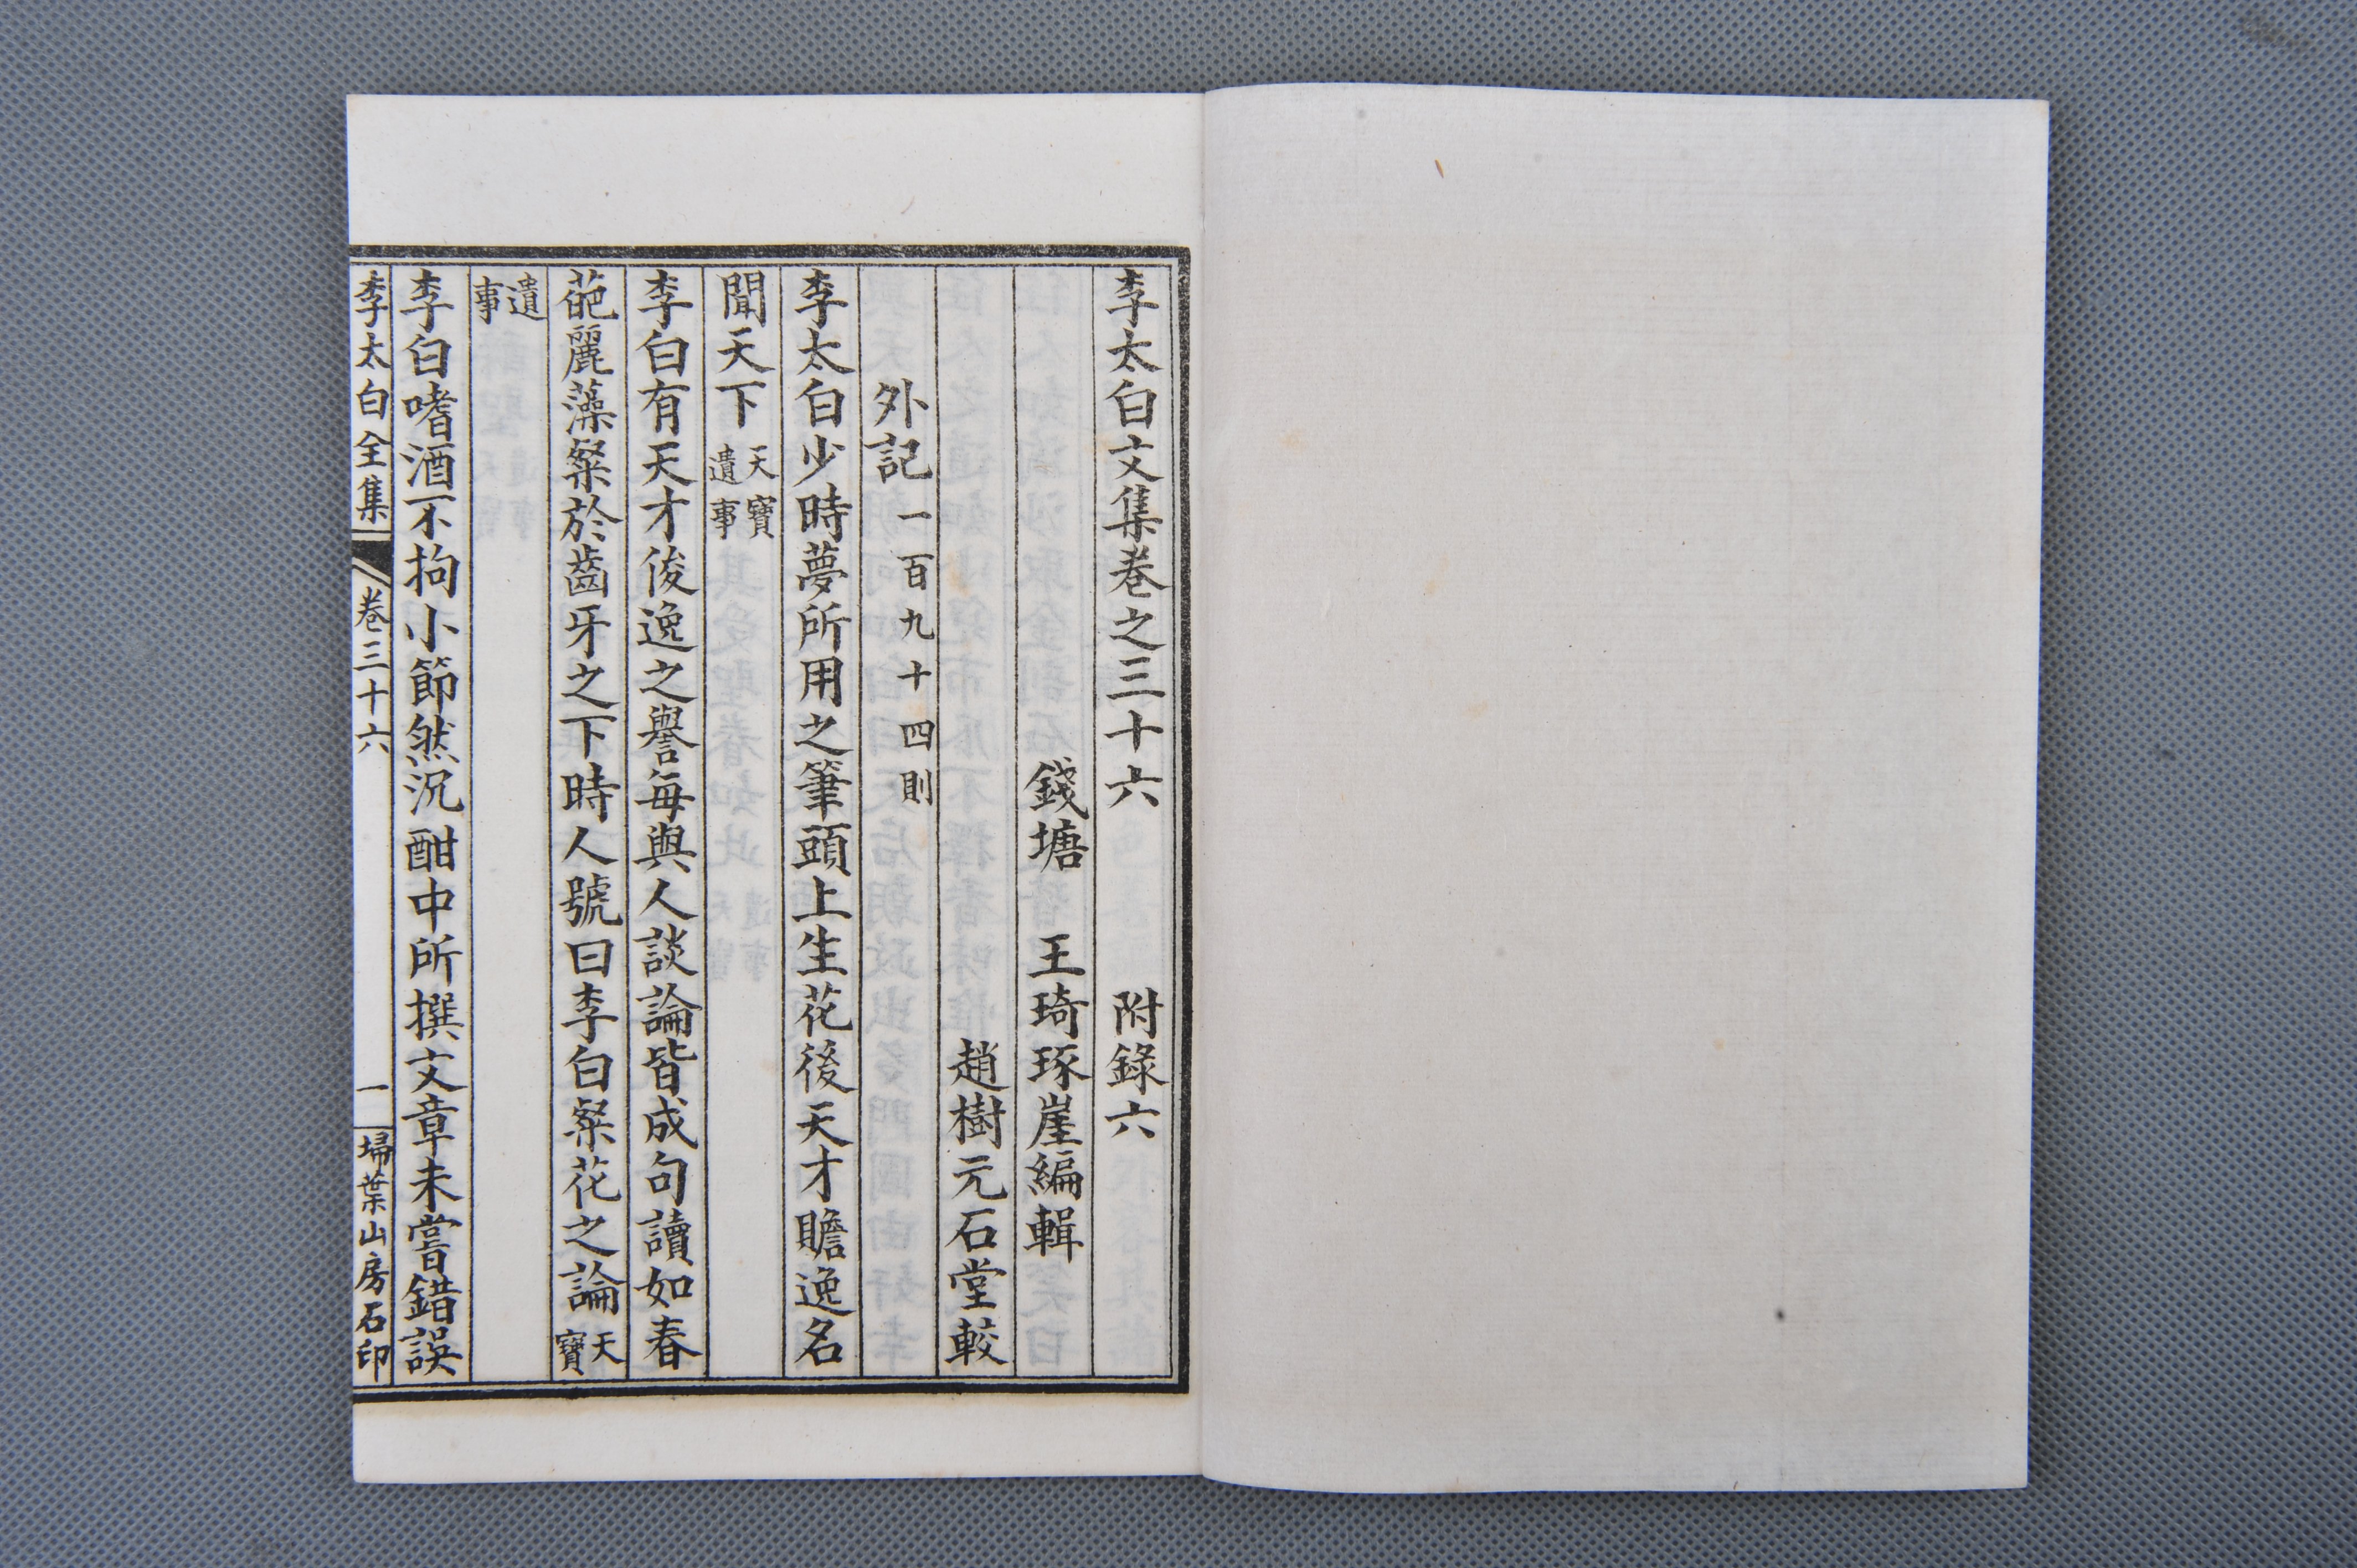 李太白文集卷之三十六　附錄六
錢塘　王琦琢崖編輯
趙樹元石堂較
外記一百九十四則
李太白少時夢所用之筆頭上生花後天才贍逸名
聞天下天寶遺事
李白有天才俊逸之譽每與人談論皆成句讀如春
葩麗藻粲於齒牙之下時人號曰李白粲花之論天寶
遺事
李白嗜酒不拘小節然沉酣中所撰文章未嘗錯誤
李太白全集　卷三十六　一　埽葉山房石印